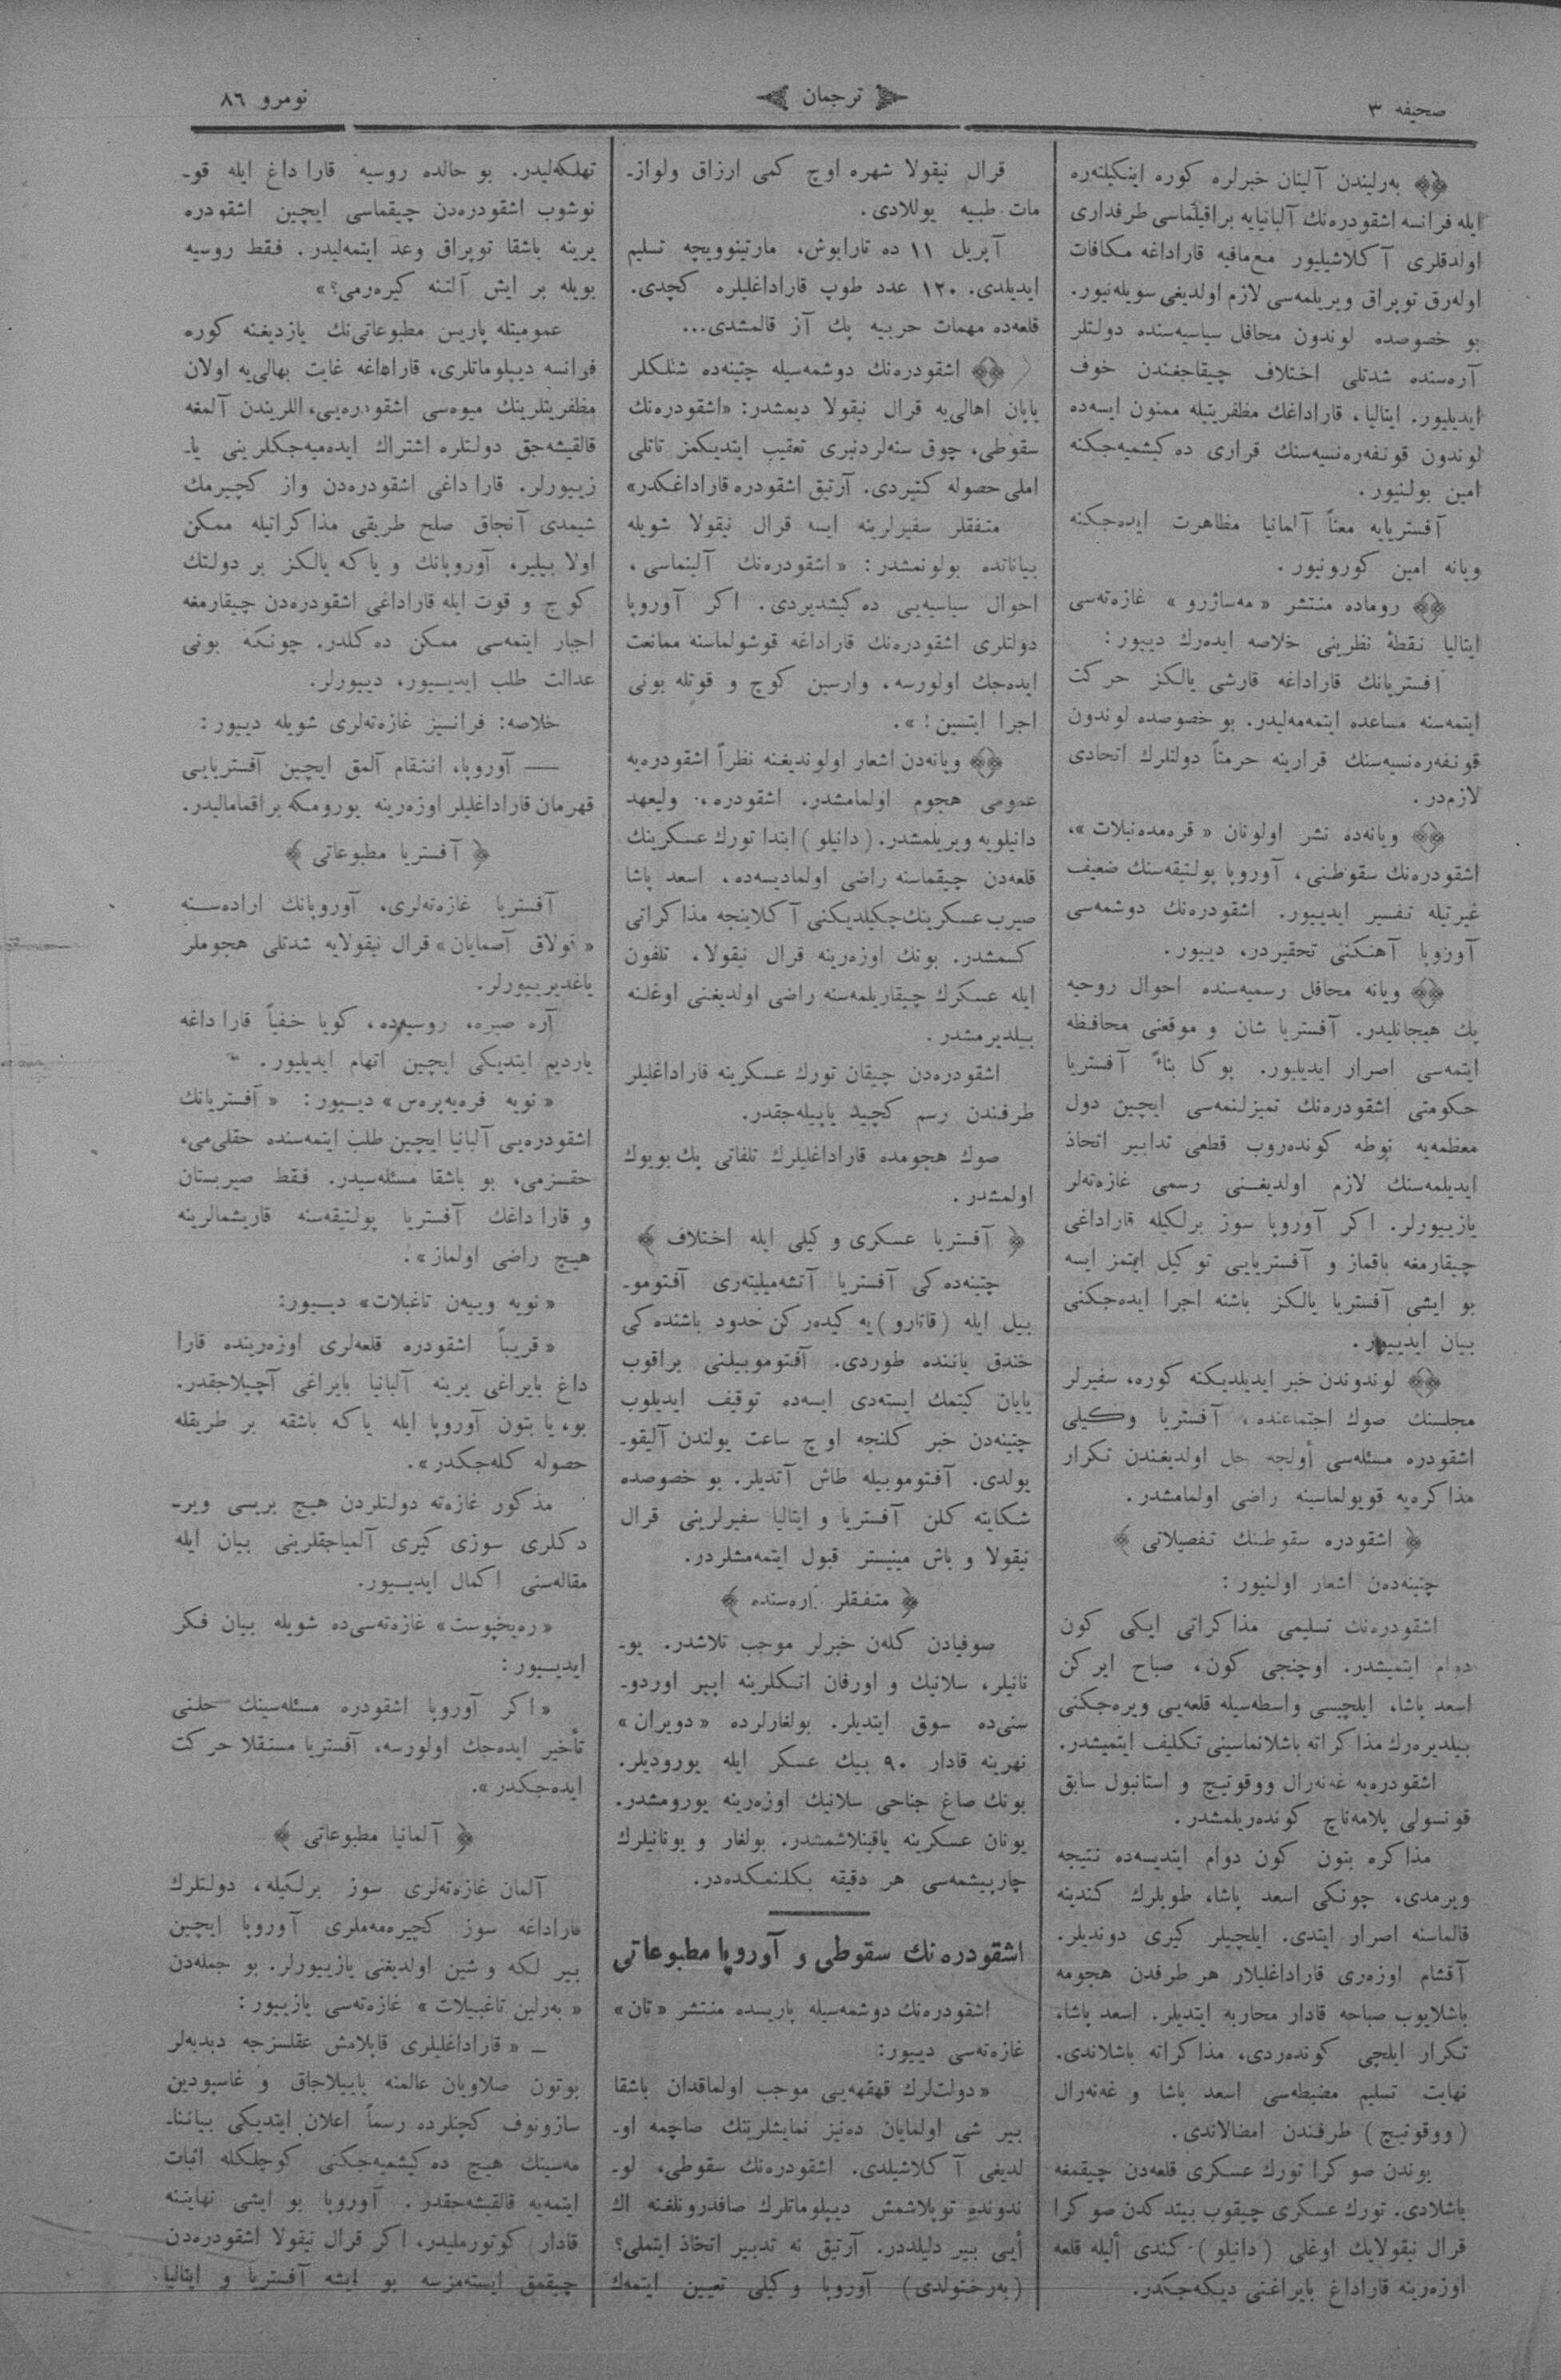 صحیفه ۳
ترجمان
نومرو ۸٦
به‌رلیندن آلینان خبرلره کوره اینکیلتەره
ایله فرانسه اشقودره‌نك آلبانیایه براقیلماسی طرفداری
اولدقلری آكلاشیلیور مع‌مافیه قاراداغه مکافات
اوله‌رق توپراق ویریلمه‌سی لازم اولدیغی سویله‌نیور.
بو خصوصده لوندون محافل سیاسیه‌سنده دولتلر
آره‌سنده شدتلی اختلاف چیقاجغندن خوف
ایدیلیور. ایتالیا، قاراداغك مظفریتیله ممنون ایسه‌ده
لوندون قونفه‌ره‌نسیه‌سنك قراری ده‌كیشمیه‌جكنه
امین بولنیور.
آفستریایه معناً آلمانیا مظاهرت ایده‌جكنه
ویانه امین كورونیور.
روماده منتشر «مه‌ساژرو» غازه‌ته‌سی
ایتالیا نقطهٔ نظرینی خلاصه ایده‌رك دییور:
آفستریانك قاراداغه قارشی یالكز حركت
ایتمه‌سنه مساعده ایتمه‌مه‌لیدر. بو خصوصده لوندون
قونفه‌ره‌نسیه‌سنك قرارینه حرمتاً دولتلرك اتحادی
لازم‌در.
ویانه‌ده نشر اولونان «فره‌مده‌نبلات»،
اشقودره‌نك سقوطنی، آوروپا پولتیقه‌سنك ضعیف
غیرتیله تفسیر ایدییور. اشقودره‌نك دوشمه‌سی
آوروپا آهنكنی تحقیردر، دییور.
ویانه محافل رسمیه‌سنده احوال روحیه
پك هیجانلیدر. آفستریا شان و موقعنی محافظه
ایتمه‌سی اصرار ایدیلیور. بوكا بناءً آفستریا
حكومتی اشقودره‌نك تمیزلنمه‌سی ایچین دول
معظمه‌یه نوطه كونده‌روب قطعی تدابیر اتخاذ
ایدیلمه‌سنك لازم اولدیغنی رسمی غازه‌ته‌لر
یازییورلر. اكر آوروپا سوز برلكیله قاراداغی
چیقارمغه باقماز و آفستریایی توكیل ایتمز ایسه
بو ایشی آفستریا یالكز باشنه اجرا ایده‌جكنی
بیان ایدییور.
لوندوندن خبر ایدیلدیكنه كوره، سفیرلر
مجلسنك صوك اجتماعنده، آفستریا وكیلی
اشقودره مسئله‌سی أولجه حل اولدیغندن تكرار
مذاكره‌یه قویولماسینه راضی اولمامشدر.
﴿ اشقودره سقوطنك تفصیلاتی ﴾
چتینه‌ده‌ن اشعار اولنیور:
اشقودره‌نك تسلیمی مذاكراتی ایكی كون
دوام ایتمیشدر. اوچنجی كون، صباح ایركن
اسعد پاشا، ایلچیسی واسطه‌سیله قلعه‌یی ویره‌جكنی
بیلدیره‌رك مذاكراته باشلانماسینی تكلیف ایتمیشدر.
اشقودره‌یه غه‌نه‌رال ووقوتیچ و استانبول سابق
قونسولی پلامه‌ناچ كونده‌ریلمشدر.
مذاكره بتون كون دوام ایتدیسه‌ده نتیجه
ویرمدی، چونكی اسعد پاشا، طوپلرك كندینه
قالماسنه اصرار ایتدی. ایلچیلر كیری دوندیلر.
آقشام اوزه‌ری قاراداغلیلار هر طرفدن هجومه
باشلایوب صباحه قادار محاربه ایتدیلر. اسعد پاشا،
تكرار ایلچی كونده‌ردی، مذاكراته باشلاندی.
نهایت تسلیم مضبطه‌سی اسعد پاشا و غه‌نه‌رال
(ووقوتیچ) طرفندن امضالاندی.
بوندن صوكرا تورك عسكری قلعه‌دن چیقمغه
باشلادی. تورك عسكری چیقوب بیتدكدن صوكرا
قرال نیقولایك اوغلی (دانیلو) كندی ألیله قلعه
اوزه‌رینه قاراداغ بایراغنی دیكه‌جكدر.
قرال نیقولا شهره اوچ كمی ارزاق ولواز-
مات طبیه یوللادی.
آپریل ۱۱ ده تارابوش، مارتینوویچه تسلیم
ایدیلدی. ۱۲۰ عدد طوپ قاراداغلیلره كچدی.
قلعه‌ده مهمات حربیه پك آز قالمشدی...
اشقودره‌نك دوشمه‌سیله چتینه‌ده شنلكلر
یاپان اهالی‌یه قرال نیقولا دیمشدر: «اشقودره‌نك
سقوطی، چوق سنه‌لردنبری تعقیب ایتدیكمز تاتلی
املی حصوله كتیردی. آرتیق اشقودره قاراداغكدر»
متفقلر سفیرلرینه ایسه قرال نیقولا شویله
بیاناتده بولونمشدر: «اشقودره‌نك آلینماسی،
احوال سیاسیه‌یی ده‌كیشدیردی. اكر آوروپا
دولتلری اشقودره‌نك قاراداغه قوشولماسنه ممانعت
ایده‌جك اولورسه، وارسین كوچ و قوتله بونی
اجرا ایتسین!».
ویانه‌دن اشعار اولوندیغنه نظراً اشقودره‌یه
عمومی هجوم اولمامشدر. اشقودره، ولیعهد
دانیلویه ویریلمشدر. (دانیلو) ابتدا تورك عسكرینك
قلعه‌دن چیقماسنه راضی اولمادیسه‌ده، اسعد پاشا
صیرب عسكرینك چكیلدیكنی آكلاینجه مذاكراتی
كسمشدر. بونك اوزه‌رینه قرال نیقولا، تلفون
ایله عسكرك چیقاریلمه‌سنه راضی اولدیغنی اوغلنه
بیلدیرمشدر.
اشقودره‌دن چیقان تورك عسكرینه قاراداغلیلر
طرفندن رسم كچید یاپیله‌جقدر.
صوك هجومده قاراداغلیلرك تلفاتی پك بویوك
اولمشدر.
﴿ آفستریا عسكری وكیلی ایله اختلاف ﴾
چتینه‌ده‌كی آفستریا آتشه‌میلیته‌ری آفتومو-
بیل ایله (قاتارو) یه كیده‌ركن حدود باشنده‌كی
خندق یاننده طوردی. آفتوموبیلنی براقوب
یایان كیتمك ایسته‌دی ایسه‌ده توقیف ایدیلوب
چتینه‌دن خبر كلنجه اوچ ساعت یولندن آلیقو-
یولدی. آفتوموبیله طاش آتدیلر. بو خصوصده
شكایته كلن آفستریا و ایتالیا سفیرلرینی قرال
نیقولا و باش مینیستر قبول ایتمه‌مشلردر.
﴿ متفقلر آره‌سنده ﴾
صوفیادن كله‌ن خبرلر موجب تلاشدر. یو-
نانیلر، سلانیك و اورفان اتكلرینه ایپر اوردو-
سنی‌ده سوق ایتدیلر. بولغارلرده «دویران»
نهرینه قادار ۹۰ بیك عسكر ایله یورودیلر.
بونك صاغ جناحی سلانیك اوزه‌رینه یورومشدر.
یونان عسكرینه یاقینلاشمشدر. بولغار و یونانیلرك
چارپیشمه‌سی هر دقیقه بكلنمكده‌در.
اشقودره‌نك سقوطی و آوروپا مطبوعاتی
اشقودره‌نك دوشمه‌سیله پاریسده منتشر «تان»
غازه‌ته‌سی دییور:
«دولتلرك قهقهه‌یی موجب اولماقدان باشقا
بیر شی اولمایان ده‌نیز نمایشلرینك صاچمه او-
لدیغی آكلاشیلدی. اشقودره‌نك سقوطی، لو-
ندونده توپلاشمش دیپلوماتلرك صافدرونلغنه اك
أیی بیر دلیلدر. آرتیق نه تدبیر اتخاذ ایتملی؟
(به‌رختولدی) آوروپا وكیلی تعیین ایتمه‌ك
تهلكه‌لیدر. بو حالده روسیه قاراداغ ایله قو-
نوشوب اشقودره‌دن چیقماسی ایچین اشقودره
یرینه باشقا توپراق وعد ایتمه‌لیدر. فقط روسیه
بویله بر ایش آلتنه كیره‌رمی؟»
عمومیتله پاریس مطبوعاتی‌نك یازدیغنه كوره
فرانسه دیپلوماتلری، قاراداغه غایت بهالی‌یه اولان
مظفریتلرینك میوه‌سی اشقودره‌یی، اللریندن آلمغه
قالقیشه‌جق دولتلره اشتراك ایده‌میه‌جكلرینی یا-
زییورلر. قاراداغی اشقودره‌دن واز كچیرمك
شیمدی آنجاق صلح طریقی مذاكراتیله ممكن
اولا بیلیر، آوروپانك و یاكه یالكز بر دولتك
كوچ و قوت ایله قاراداغی اشقودره‌دن چیقارمغه
اجبار ایتمه‌سی ممكن ده‌كلدر. چونكه بونی
عدالت طلب ایدییور، دییورلر.
خلاصه: فرانسیز غازه‌ته‌لری شویله دییور:
— آوروپا، انتقام آلمق ایچین آفستریایی
قهرمان قاراداغلیلر اوزه‌رینه یورومكه براقمامالیدر.
﴿ آفستریا مطبوعاتی ﴾
آفستریا غازه‌ته‌لری، آوروپانك اراده‌سنه
«قولاق آصمایان» قرال نیقولایه شدتلی هجوملر
یاغدیرییورلر.
آره صیره، روسیه‌ده، كویا خفیاً قاراداغه
یاردیم ایتدیكی ایچین اتهام ایدیلیور.
«نویه فره‌یه‌پره‌س» دییور: «آفستریانك
اشقودره‌یی آلبانیا ایچین طلب ایتمه‌سنده حقلی‌می،
حقسزمی، بو باشقا مسئله‌سیدر. فقط صیربستان
و قاراداغك آفستریا پولتیقه‌سنه قاریشمالرینه
هیچ راضی اولماز».
«نویه ویه‌ن تاغبلات» دییور:
«قریباً اشقودره قلعه‌لری اوزه‌رینده قارا
داغ بایراغی یرینه آلبانیا بایراغی آچیلاجقدر.
بو، یا بتون آوروپا ایله یاكه باشقه بر طریقله
حصوله كله‌جكدر».
مذكور غازه‌ته دولتلردن هیچ بریسی ویر-
دكلری سوزی كیری آلمیاجقلرینی بیان ایله
مقاله‌سنی اكمال ایدییور.
«ره‌یخپوست» غازه‌ته‌سی‌ده شویله بیان فكر
ایدییور:
«اكر آوروپا اشقودره مسئله‌سینك حلنی
تأخیر ایده‌جك اولورسه، آفستریا مستقلا حركت
ایده‌جكدر».
﴿ آلمانیا مطبوعاتی ﴾
آلمان غازه‌ته‌لری سوز برلكیله، دولتلرك
قاراداغه سوز كچیره‌مه‌ملری آوروپا ایچین
بیر لكه و شین اولدیغنی یازییورلر. بو جمله‌دن
«به‌رلین تاغبیلات» غازه‌ته‌سی یازییور:
— «قاراداغلیلری قاپلامش عقلسزجه دبدبه‌لر
بوتون صلاویان عالمنه یاییلاجاق و غاسپودین
سازونوف كچنلرده رسماً اعلان ایتدیكی بیاننا-
مه‌سینك هیچ ده‌كیشمیه‌جكنی كوچلكله اثبات
ایتمه‌یه قالقیشه‌جقدر. آوروپا بو ایشی نهایتنه
قادار كوتورملیدر، اكر قرال نیقولا اشقودره‌دن
چیقمق ایسته‌مزسه بو ایشه آفستریا و ایتالیا